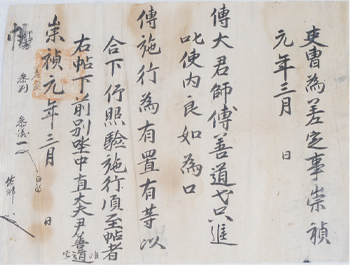 吏曹為差定事崇禎
元年三月 日
傅大君師傅善道
叱使內良如為
傳施行為有置有等以
合下仰照驗施行須至帖者
右帖下前別坐中直大夫尹善道
崇禎元年三月 日
參判
參議
佐郎